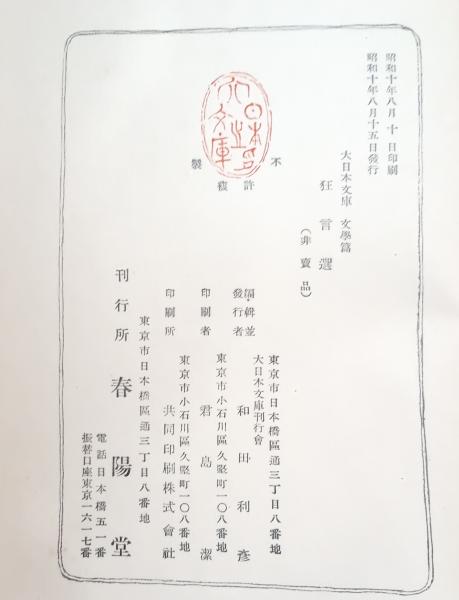 昭和十年八月十日印刷
昭和十年八月十五日發行
大日本文庫 文學篇
狂言選
(非賣品)
不許複製
大日本文庫之印
東京市日本橋區通三丁目八番地
大日本文庫刊行會
編輯並發行者 和田利彥
東京市小石川區久堅町一〇八番地
印刷者 君島潔
東京市小石川區久堅町一〇八番地
印刷所 共同印刷株式會社
東京市日本橋區通三丁目八番地
刊行所 春陽堂
電話日本橋五一番
振替口座東京一六一七番